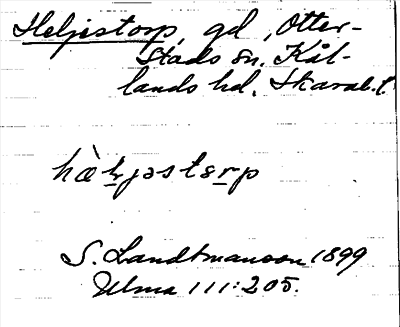 Heljestorp, gd, Otter-
stads sn. Kål-
lands hd. Skarab.l.
hæ̀ljəstɵrp
S. Landtmanson 1899
Ulma 111:205.